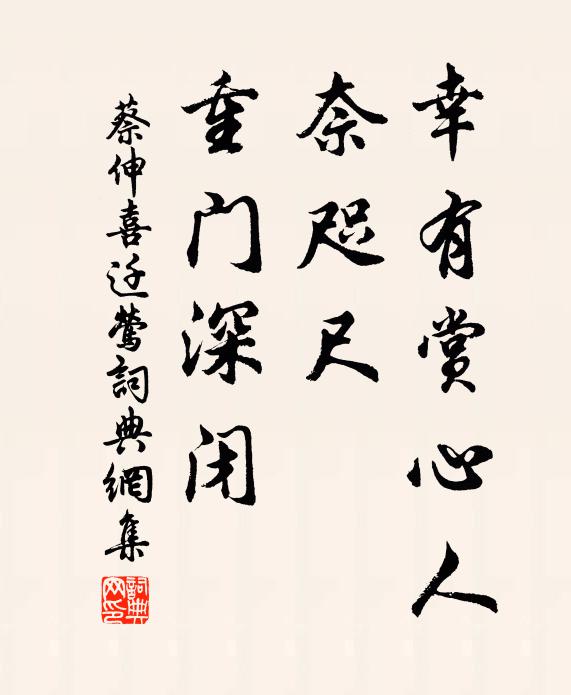 幸有赏心人
奈咫尺
重门深闭
蔡伸喜迁莺詞典網集
詞典网印